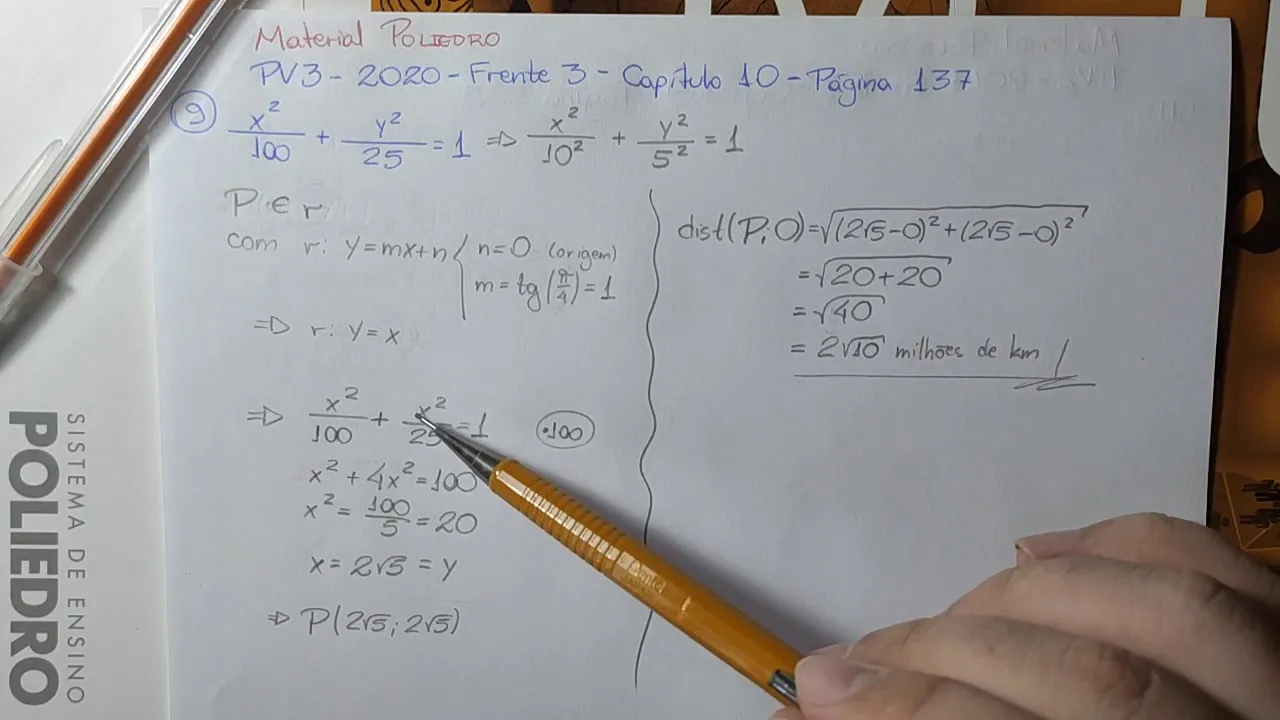 Material POLIEDRO
PV3 - 2020 - Frente 3 - Capítulo 10 - Página 137
9 x²/100 + y²/25 = 1 ⇒ x²/10² + y²/5² = 1
P ∈ r
com r: y=mx+n { n=0 (origem)
m = tg(π/4) = 1
⇒ r: y=x
⇒ x²/100 + x²/25 = 1 ·100
x² + 4x² = 100
x² = 100/5 = 20
x = 2√5 = y
⇒ P(2√5; 2√5)
dist(P;O) = √((2√5-0)² + (2√5-0)²)
= √(20+20)
= √40
= 2√10 milhões de km
SISTEMA DE ENSINO
POLIEDRO